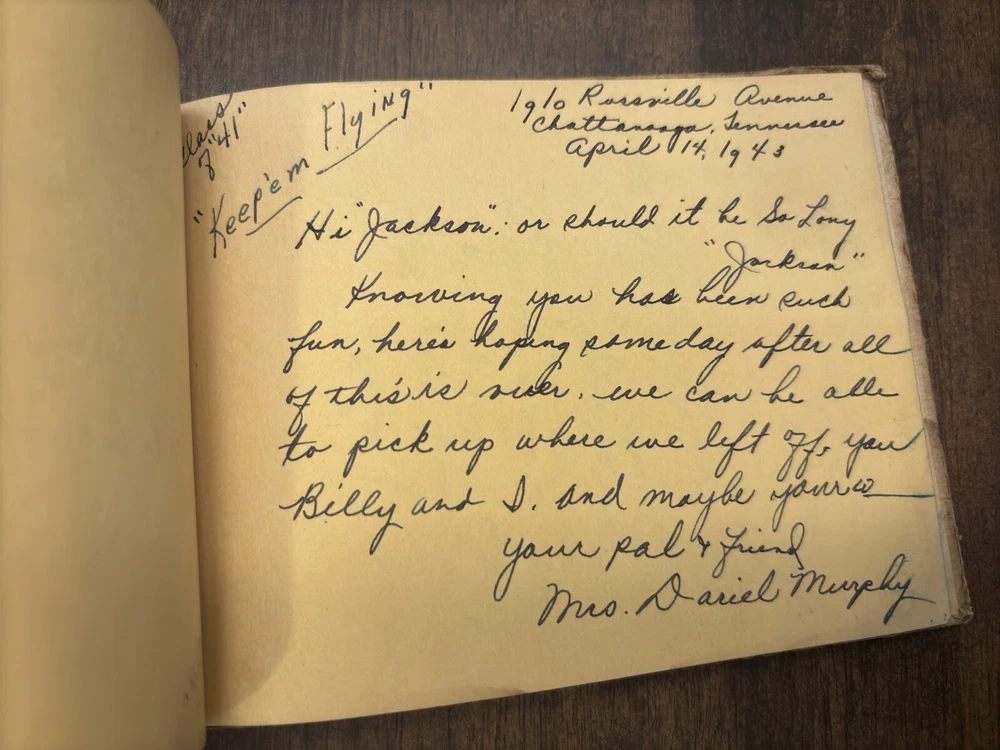 Class
of "41"
"Keep'em Flying"
1910 Rossville Avenue
Chattanooga, Tennessee
April 14, 1943
Hi "Jackson": or should it be So Long
"Jackson"
Knowing you has been such
fun, here's hoping someday after all
of this is over, we can be able
to pick up where we left off, you
Billy and I. and maybe your
your pal & friend
Mrs. Daniel Murphy